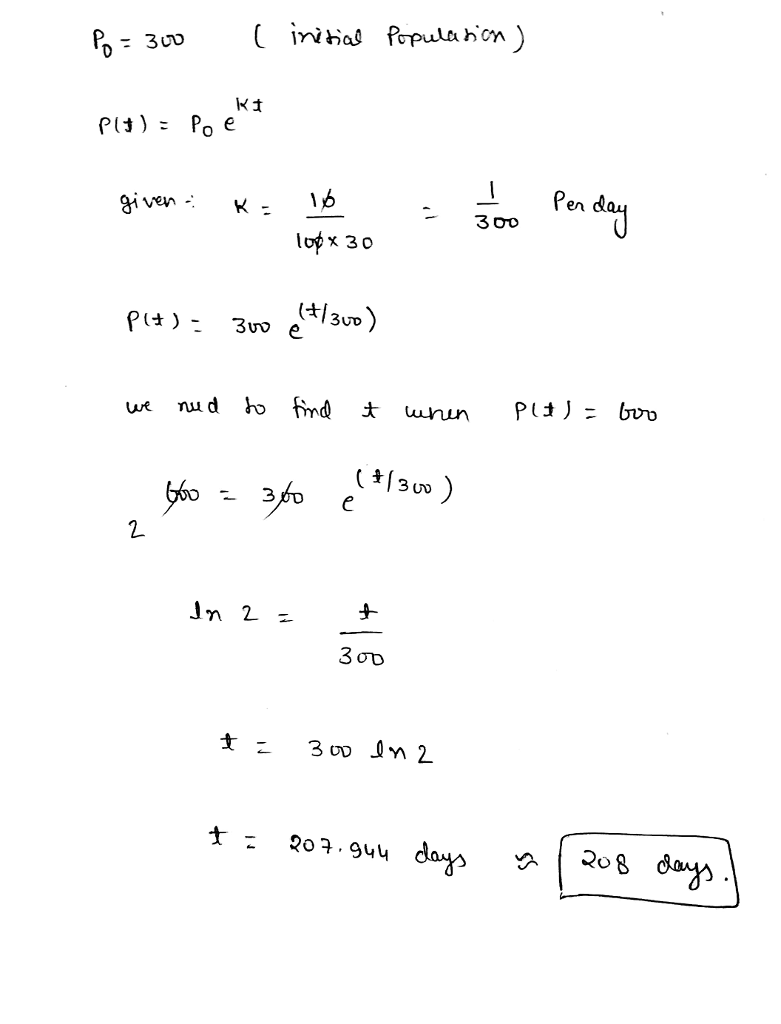 P₀ = 300 ( initial Population )
P(t) = P₀ e^{kt}
given :- K = 10/(100 × 30) = 1/300 Per day
P(t) = 300 e^{(t/300)}
we need to find t when P(t) = 600
600 = 300 e^{(t/300)}
2
ln 2 = t/300
t = 300 ln 2
t = 207.944 days ≈ 208 days.